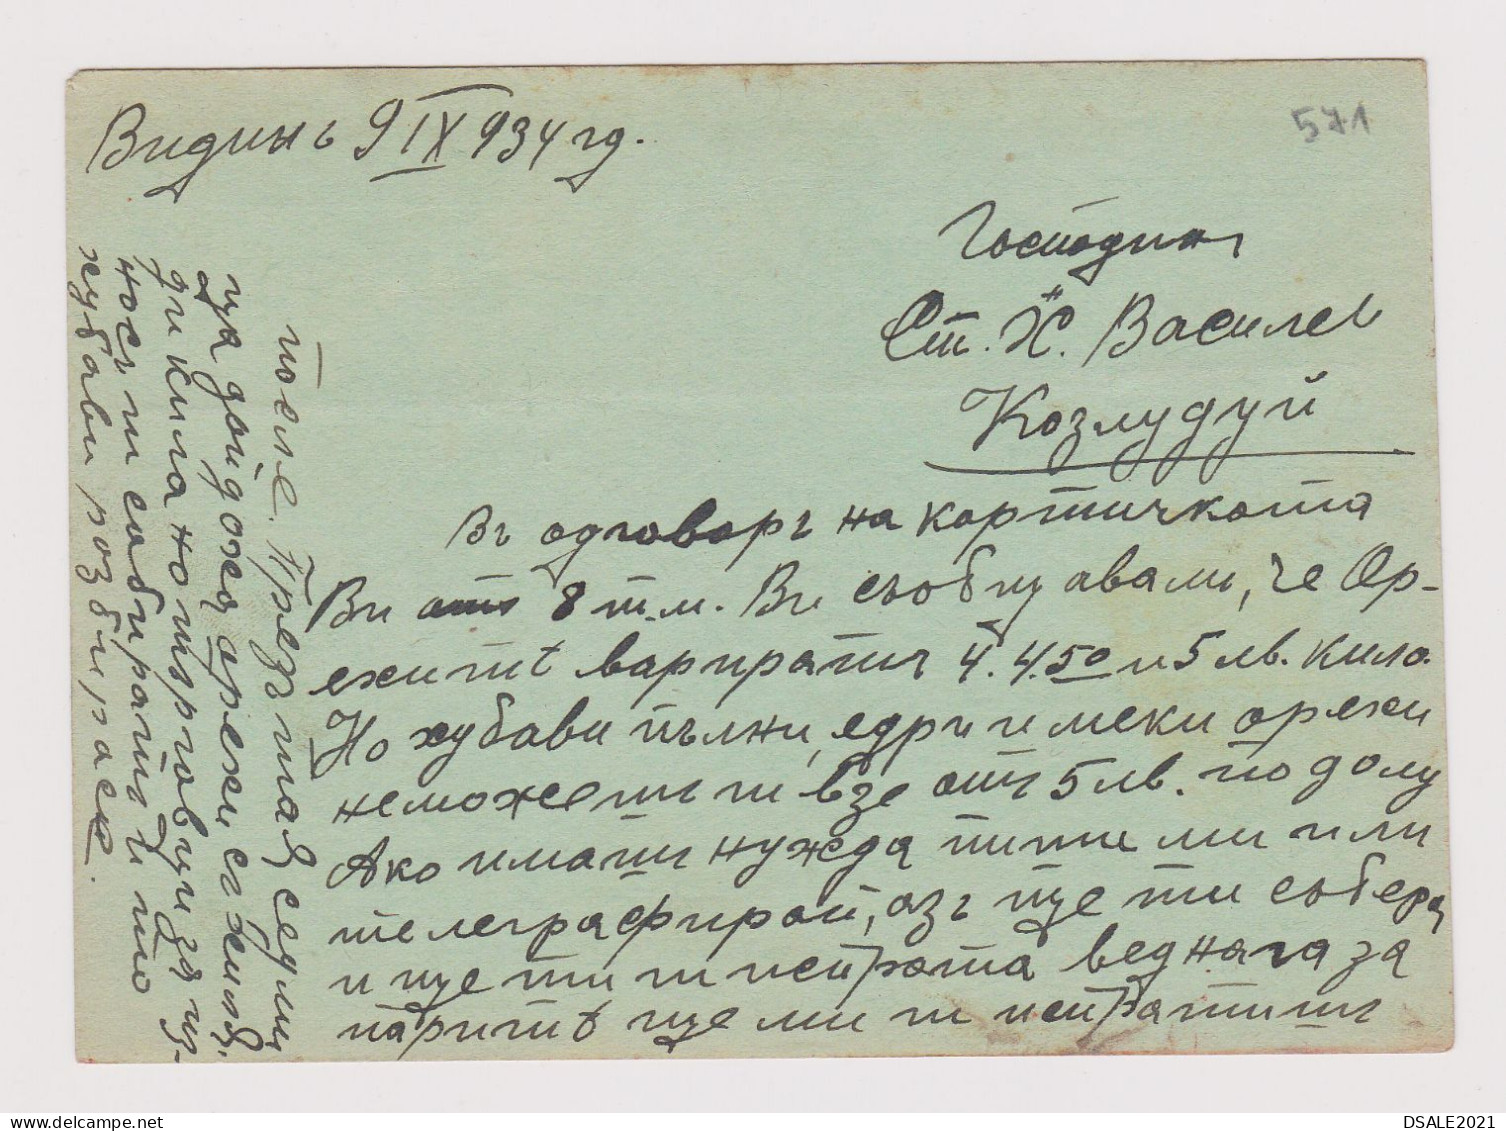 Видинъ 9 IX 934 гд.
571
Господинъ
Ст. Х. Василев
Козлудуй
Въ одговоръ на картичката
Ви отъ 8 т.м. Ви съобщавами, че Ор-
ехитѣ вариратъ 4. 4.50 и 5 лв. кило.
Но хубави пълни, едри и меки орехи
неможешъ ги взе отъ 5 лв. по долу
Ако имашъ нужда пише ми или
телеграфирай, азъ ще ти събера
и ще ти ги испрата веднага за
паритѣ ще ми ги испратишъ
после. Презъ тая седми
ца дойдоха орехи съ хиля
ди кила но търговци за из-
носъ ги събиратъ и то
хубави разбирасе.
DSALE2021